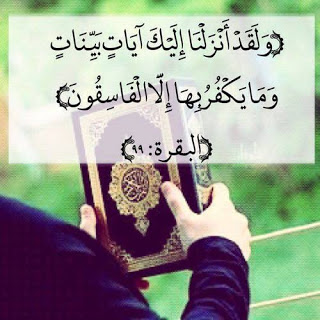 ﴿وَلَقَدْ أَنْزَلْنَا إِلَيْكَ آيَاتٍ بَيِّنَاتٍ
وَمَا يَكْفُرُ بِهَا إِلَّا الْفَاسِقُونَ﴾
﴿البقرة: ٩٩﴾